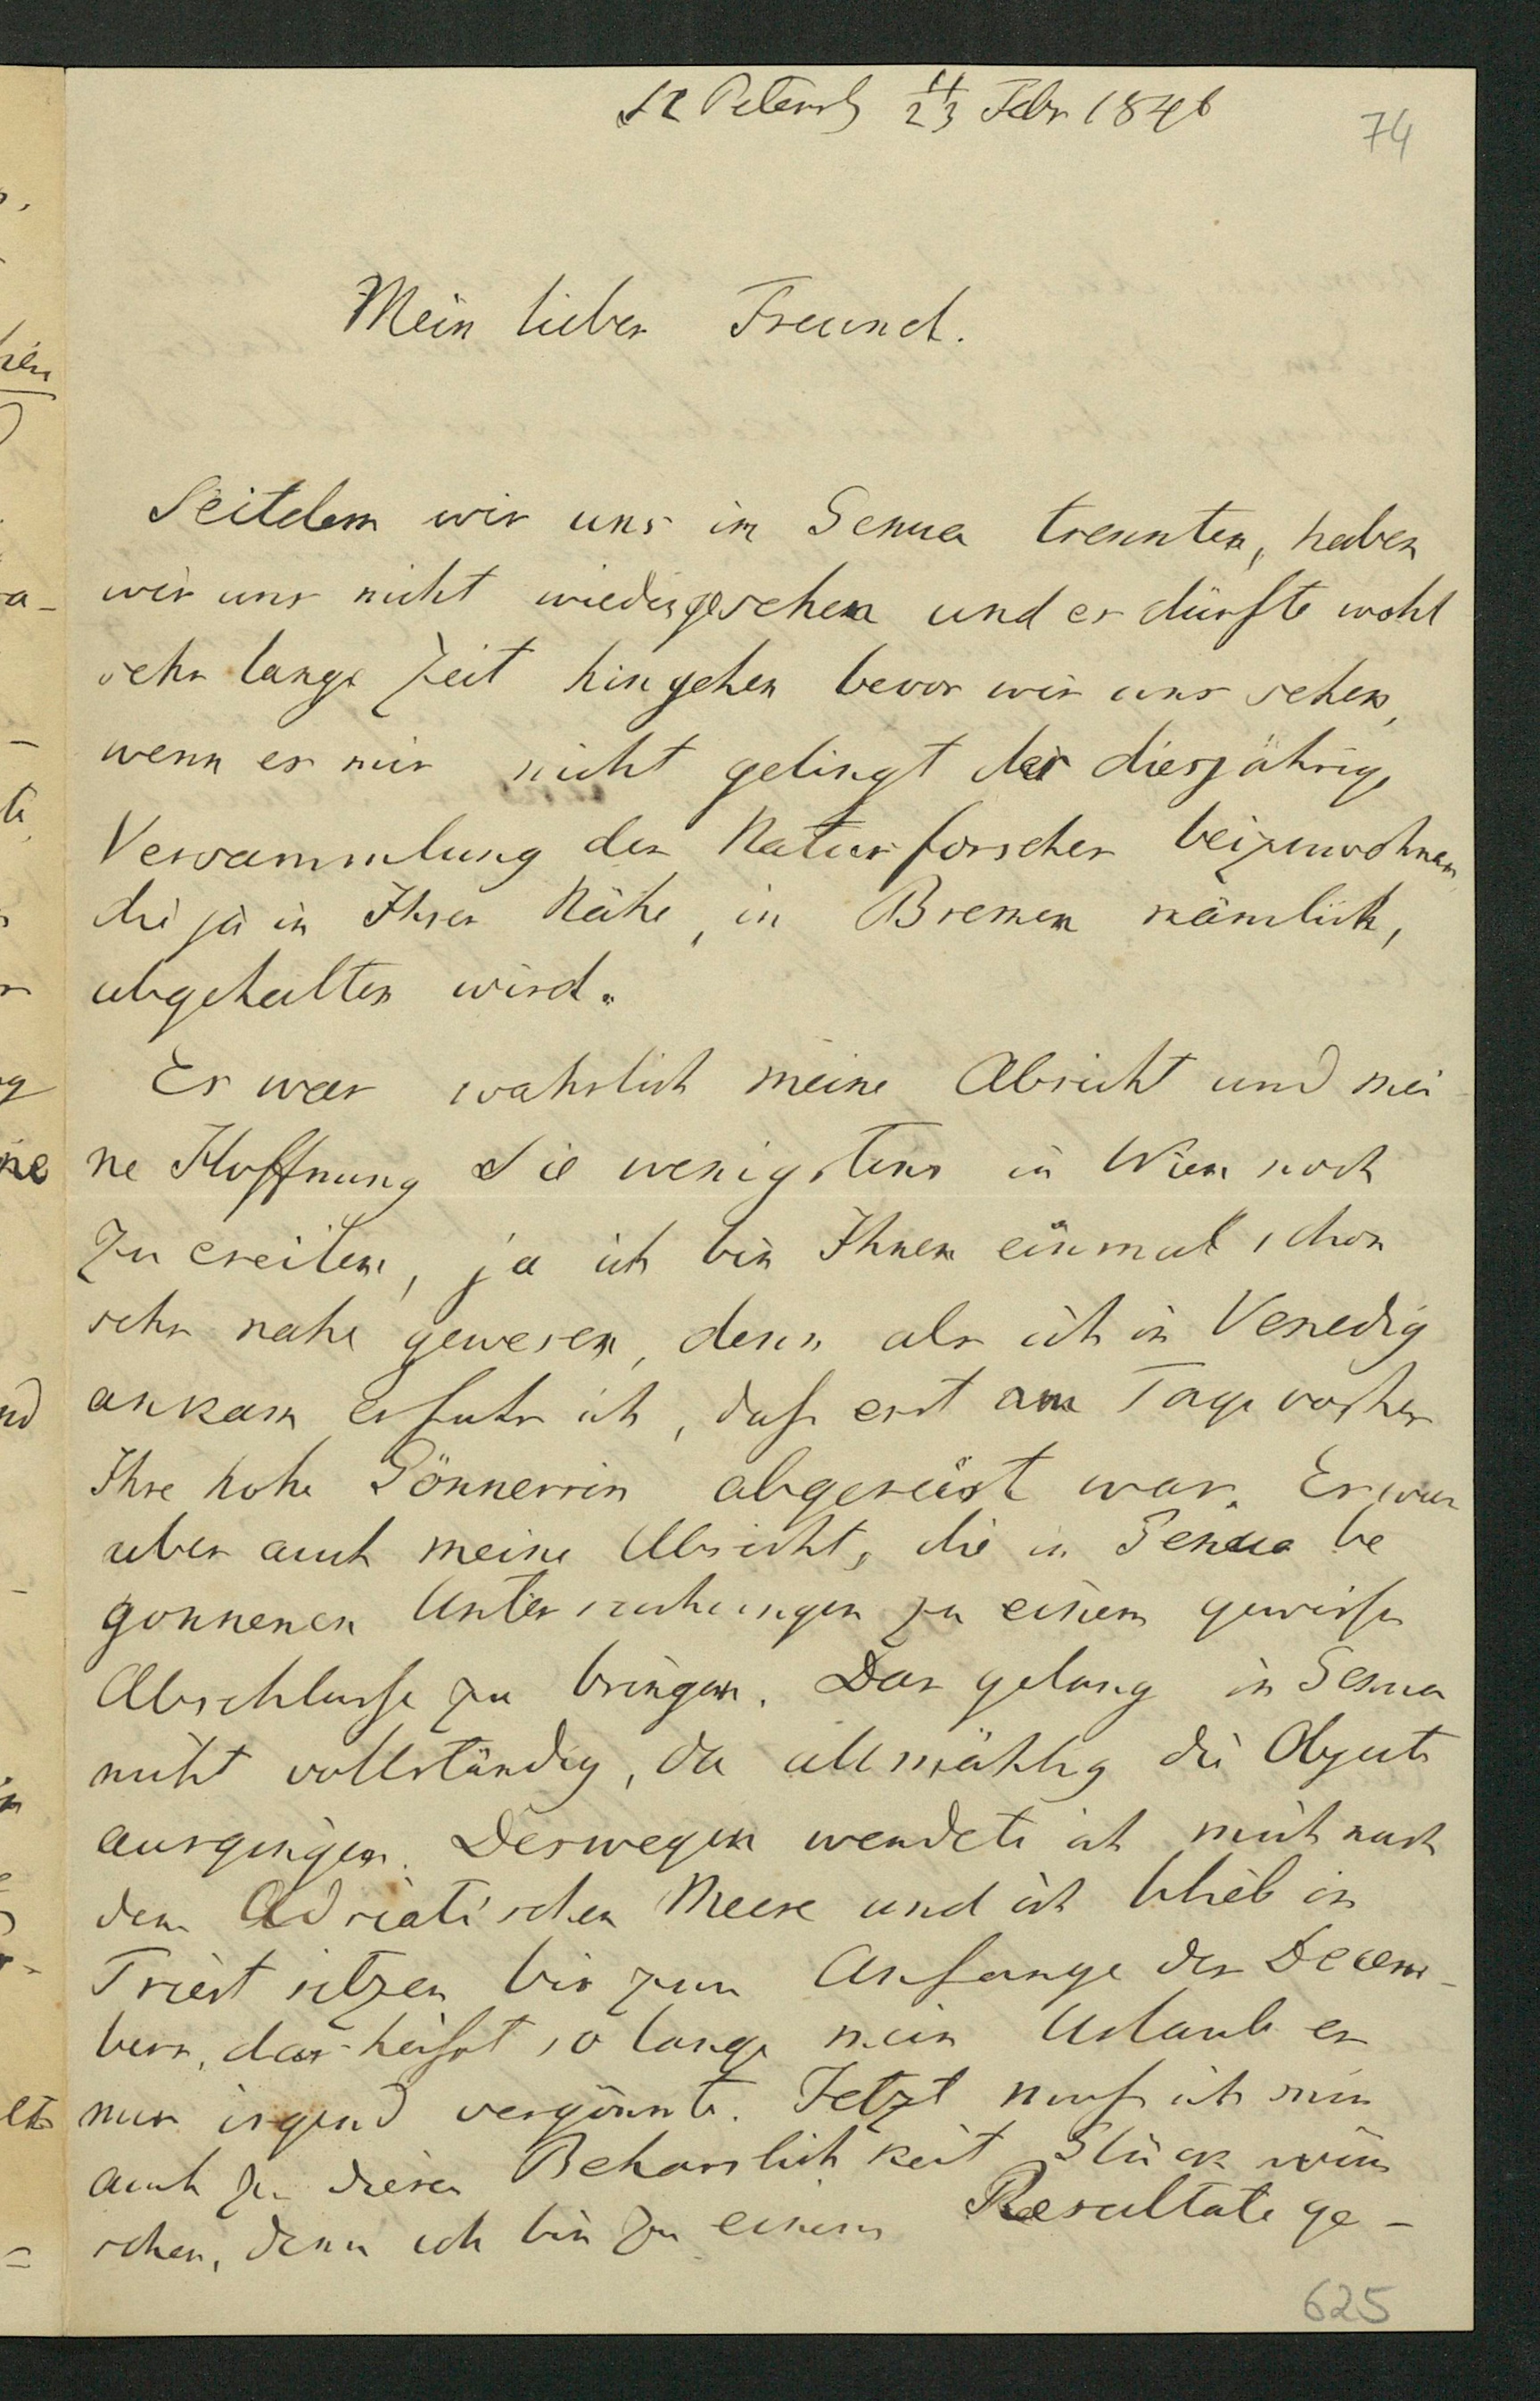 St Petersb 11/23 Febr 1846
74
Mein lieber Freund.
Seitdem wir uns in Genua trennten, haben
wir uns nicht wiedergesehen und es dürfte wohl
sehr lange Zeit hingehen bevor wir uns sehen,
wenn es mir nicht gelingt der diesjährige
Versammlung der Naturforscher beizuwohnen
die ja in Ihrer Nähe, in Bremen nämlich,
abgehalten wird.
Es war wahrlich meine Absicht und mei
ne Hoffnung Sie wenigstens in Wien noch
zu ereilen, ja ich bin Ihnen einmal schon
sehr nahe gewesen, denn als ich in Venedig
ankam erfuhr ich, daß erst am Tage vorher
Ihre hohe Gönnerrin abgereist war. Es war
aber auch meine Absicht, die in Genua be
gonnenen Untersuchungen zu einem gewissen
Abschlusse zu bringen. Das gelang in Genua
nicht vollständig, da allmählig die Objecte
ausgingen. Deswegen wendete ich mich nach
dem Adriatischen Meere und ich blieb in
Triest sitzen bis zum Anfange des Decem-
bers, das heißt so lange mein Urlaub es
nur irgend vergönnte. Jetzt muß ich mir
auch zu dieser Beharrlichkeit Glück wün
schen, denn ich bin zu einem Resultate ge-
625